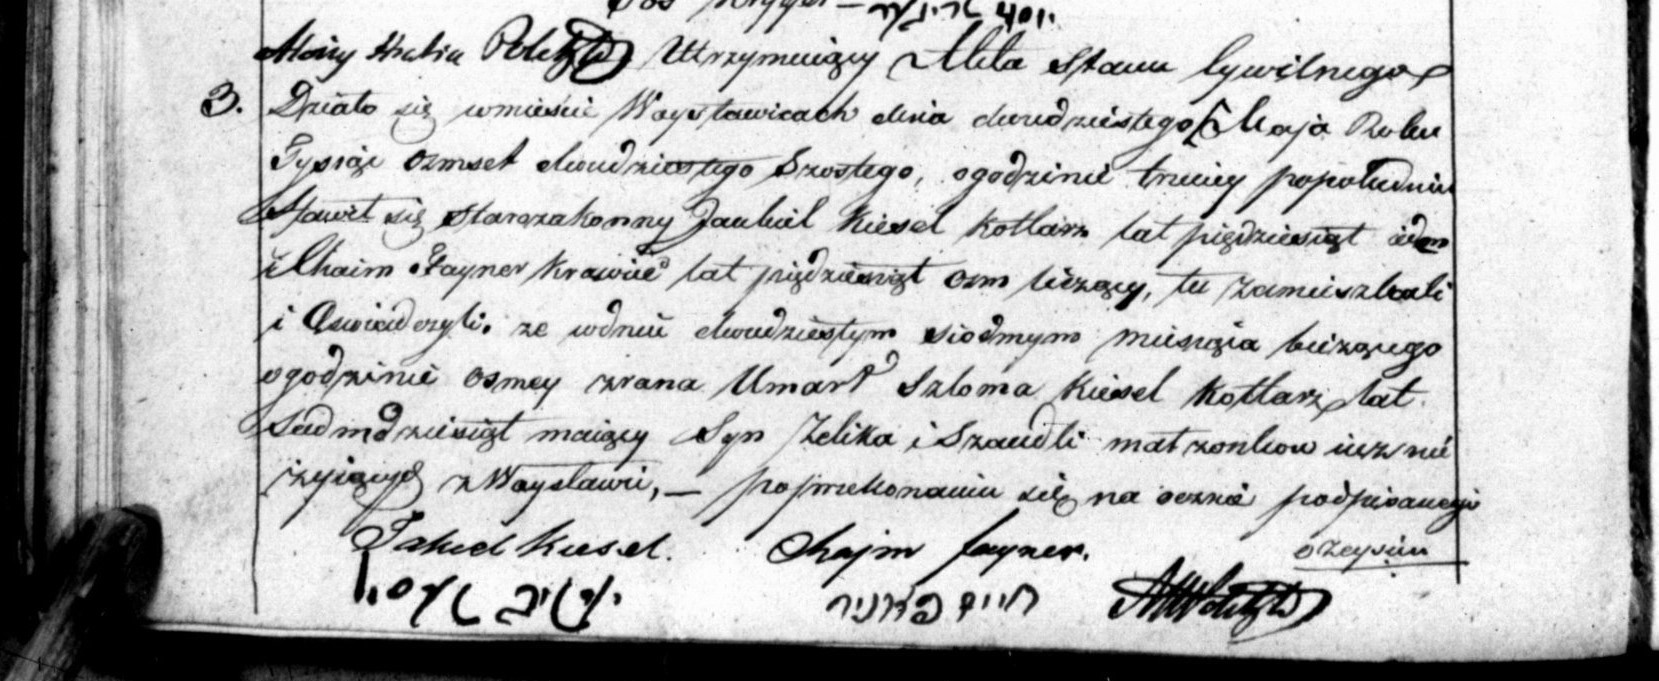 Utrzymuiący Akta Stanu Cywilnego
3. Działo się wmieście Woysławicach dnia dwudziestego Maja Roku
Tysiąc osmset dwudziestego Szostego, ogodzinie trzeciey popołudniu
Stawił się starozakonny Jankiel Kiesel kotlarz lat pięcdziesiąt
i Chaim Fayner krawiec lat pięcdziesiąt osm liczący, tu zamieszkali
i Oswiadczyli. ze wdniu dwudziestym siodmym miesiąca bieżącego
ogodzinie osmey zrana Umarł Szloma Kiesel kotlarz lat
siedmdziesiąt maiący Syn Zelika i Szaudli małzonkow iuz nie
żyiących z Woysławic, — poprzekonaniu się na oczne podpisanego
o zeysciu
Kiesel. Chajm fayner.
חיים פאינער